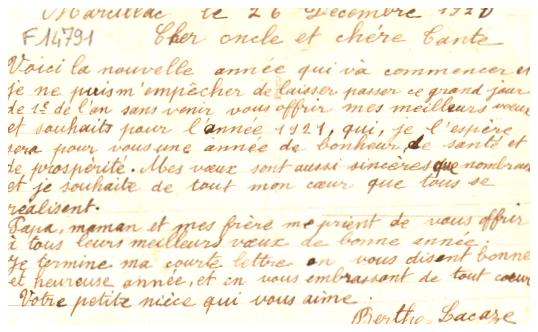 Marcillac le 26 Décembre 1920
F14791
Cher oncle et chère Tante
Voici la nouvelle année qui và commencer et
je ne puis m'empêcher de laisser passer ce grand jour
de 1er de l'an sans venir vous offrir mes meilleurs vœux
et souhaits pour l'année 1921, qui, je l'espère
sera pour vous une année de bonheur de santé et
de prospérité. Mes vœux sont aussi sincères que nombreux
et je souhaite de tout mon cœur que tous se
réalisent.
Papa, maman et mes frère me prient de vous offrir
à tous leurs meilleurs vœux de bonne année
Je termine ma courte lettre en vous disent bonne
et heureuse année, et en vous embrassant de tout cœur
Votre petite nièce qui vous aime.
Berthe Lacaze